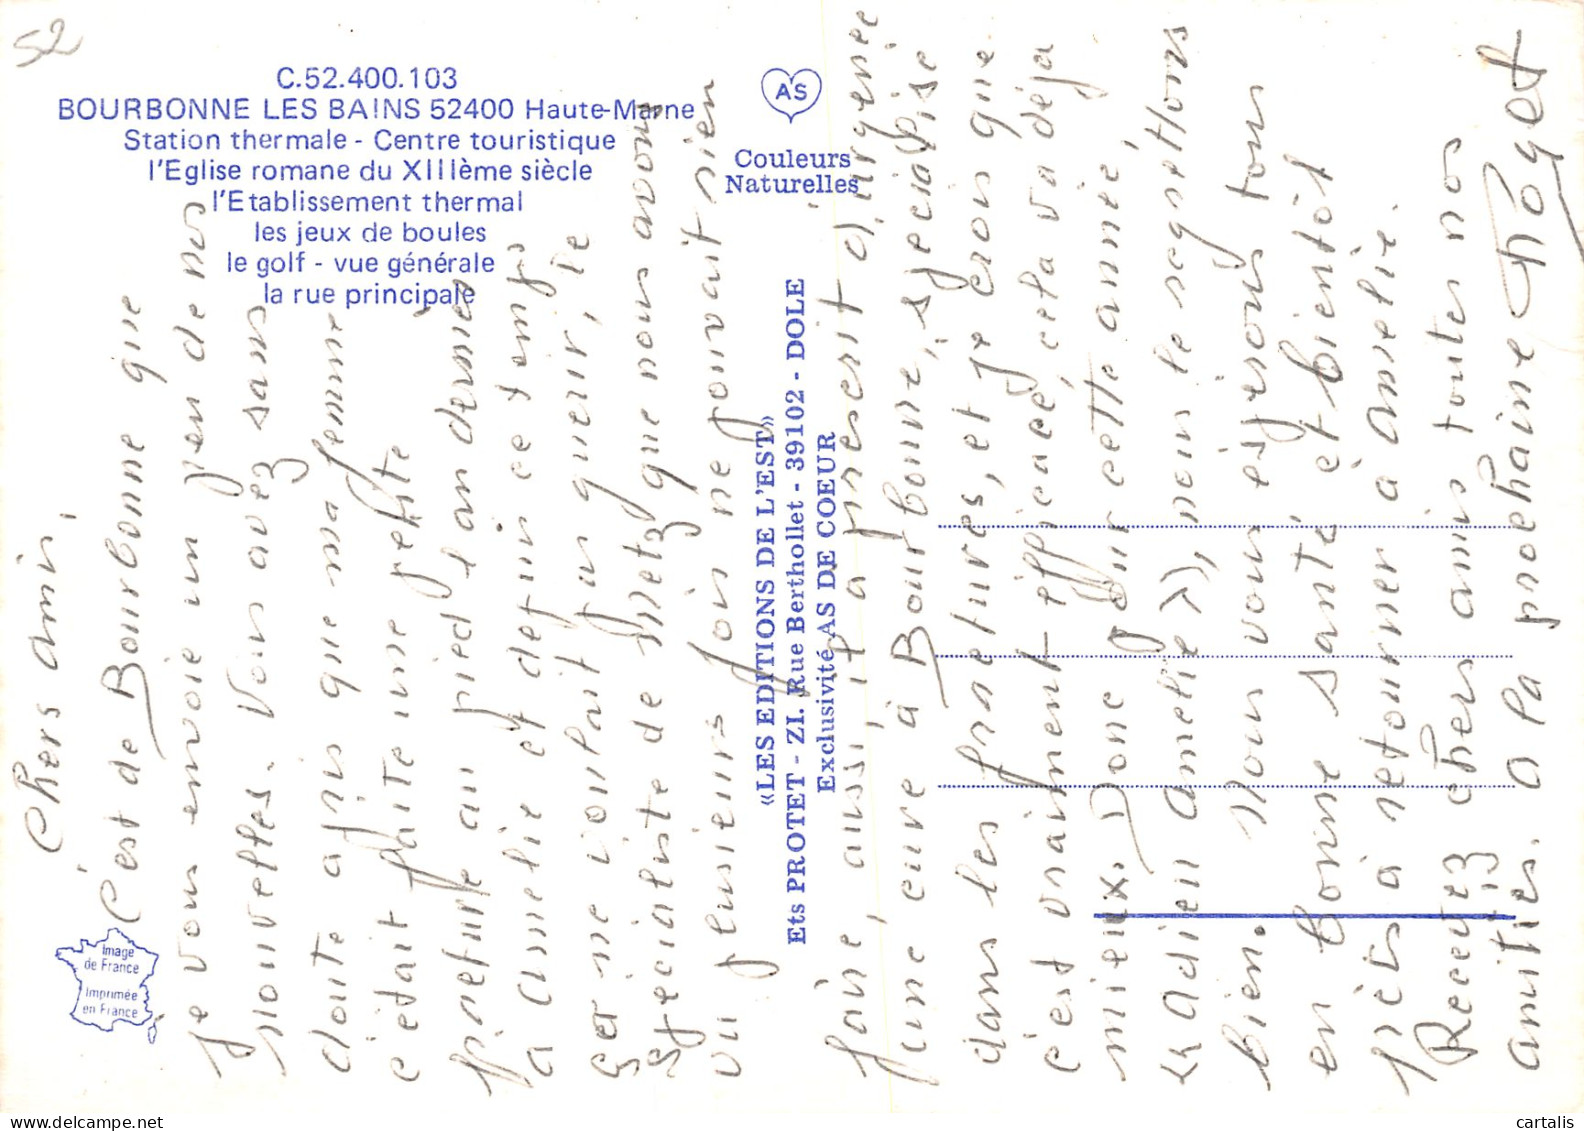 52
C.52.400.103
BOURBONNE LES BAINS 52400 Haute-Marne
Station thermale - Centre touristique
l'Eglise romane du XIIIème siècle
l'Etablissement thermal
les jeux de boules
le golf - vue générale
la rue principale
AS
Couleurs
Naturelles
«LES EDITIONS DE L'EST»
Ets PROTET - ZI. Rue Berthollet - 39102 - DOLE
Exclusivité AS DE COEUR
Image
de France
Imprimée
en France
Chers amis,
C'est de Bourbonne que
je vous envoie un peu de nos
nouvelles. Vous avez sans
doute appris que ma femme
c'était faite une petite
fracture au pied l'an dernier
à Amélie et depuis ce temps
ça ne voulait pas guérir, le
spécialiste de Metz que nous avons
vu plusieurs fois ne pouvait rien
faire, aussi il a prescrit d'urgence
une cure à Bourbonne, spécialisé
dans les fractures, et je crois que
c'est vraiment efficace, cela va déjà
mieux. Donc pour cette année,
« adieu Amélie », nous le regrettons
bien. Nous vous espérons tous
en bonne santé et bientôt
prêts à retourner à Amélie.
Recevez chers amis toutes nos
amitiés. A la prochaine Choget
cartalis